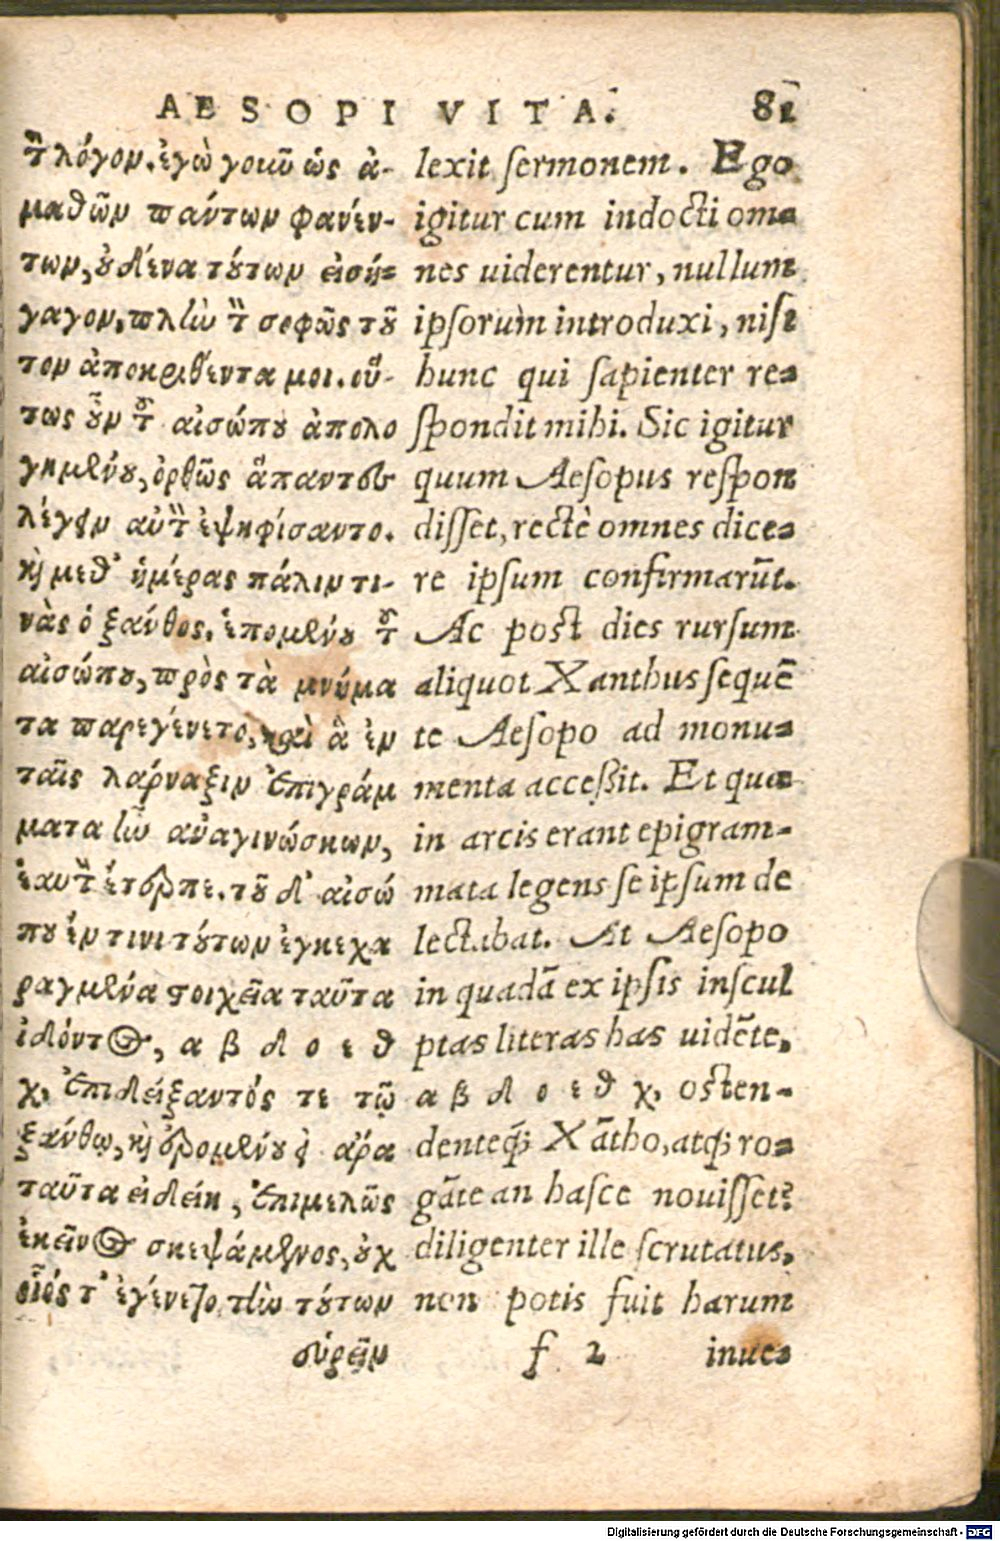 AESOPI VITA. 81
τὸν λόγον. ἐγὼ γοιῶ ὡς ἀ-
μαθῶν πάντων φανέν-
των, οὐδένα τούτων εἰσή-
γαγον, πλὼ τὸν σοφῶς τοῦ
τον ἀποκριθέντα μοι. οὕ-
τως οὖν τοῦ αἰσώπου ἀπολο
γημένου, ὀρθῶς ἅπαντες
λέγειν αὐτὸν ἐψηφίσαντο.
καὶ μεθ' ἡμέρας πάλιν τι-
νὰς ὁ ξάνθος, ἑπομένου τοῦ
αἰσώπου, πρὸς τὰ μνήμα
τα παρεγένετο, καὶ ἃ ἐν
ταῖς λάρναξιν ἐπιγράμ
ματα ἦν ἀναγινώσκων,
ἑαυτὸν ἔτερπε. τοῦ δ' αἰσώ
που ἔν τινι τούτων ἐγκεχα
ραγμένα στοιχεῖα ταῦτα
ἰδόντος, α β δ ο ε θ
χ, ἐπιδείξαντός τε τῷ
ξάνθῳ, καὶ ἐρομένου εἰ ἄρα
ταῦτα εἰδείη, ἐπιμελῶς
ἐκεῖνος σκεψάμενος, οὐχ
οἷός τ' ἐγένετο τὼ τούτων
εὑρεῖν
lexit sermonem. Ego
igitur cum indocti om-
nes uiderentur, nullum
ipsorum introduxi, nisi
hunc qui sapienter re-
spondit mihi. Sic igitur
quum Aesopus respon
disset, rectè omnes dice-
re ipsum confirmarūt.
Ac post dies rursum
aliquot Xanthus sequē
te Aesopo ad monu-
menta accessit. Et quæ
in arcis erant epigram-
mata legens se ipsum de
lectabat. At Aesopo
in quadā ex ipsis inscul
ptas literas has uidēte,
α β δ ο ε θ χ, osten-
denteq́; Xātho, atq́; ro-
gāte an hasce nouisset?
diligenter ille scrutatus,
non potis fuit harum
f 2 inue-
Digitalisierung gefördert durch die Deutsche Forschungsgemeinschaft - DFG